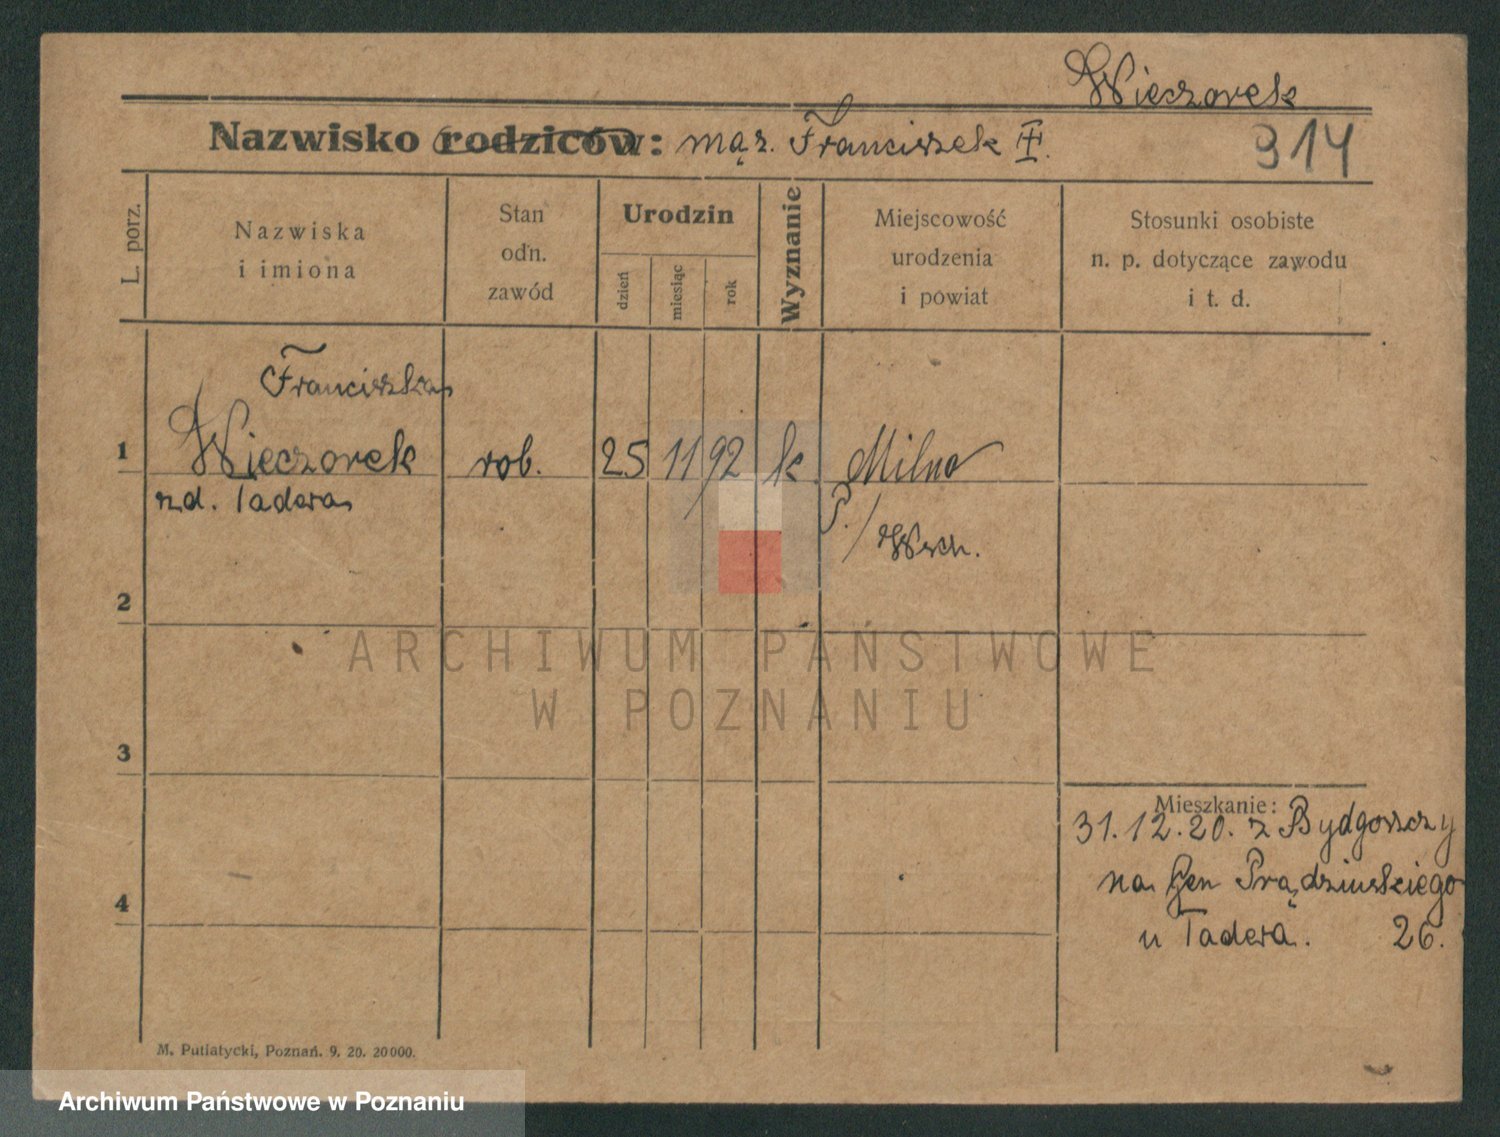 Wieczorek
Nazwisko rodziców: mąż. Franciszek †.
914
L. porz.
Nazwiska
i imiona
Stan
odn.
zawód
Urodzin
dzień
miesiąc
rok
Wyznanie
Miejscowość
urodzenia
i powiat
Stosunki osobiste
n. p. dotyczące zawodu
i t. d.
Franciszka
1 Wieczorek rob. 25 11 92 k. Milno
zd. Tadera
P. / Wsch.
2
ARCHIWUM PAŃSTWOWE
W POZNANIU
3
Mieszkanie:
31.12.20. z Bydgoszczy
na Gen Prądzinskiego
4
u Tadera. 26.
M. Putiatycki, Poznań. 9. 20. 20000.
Archiwum Państwowe w Poznaniu